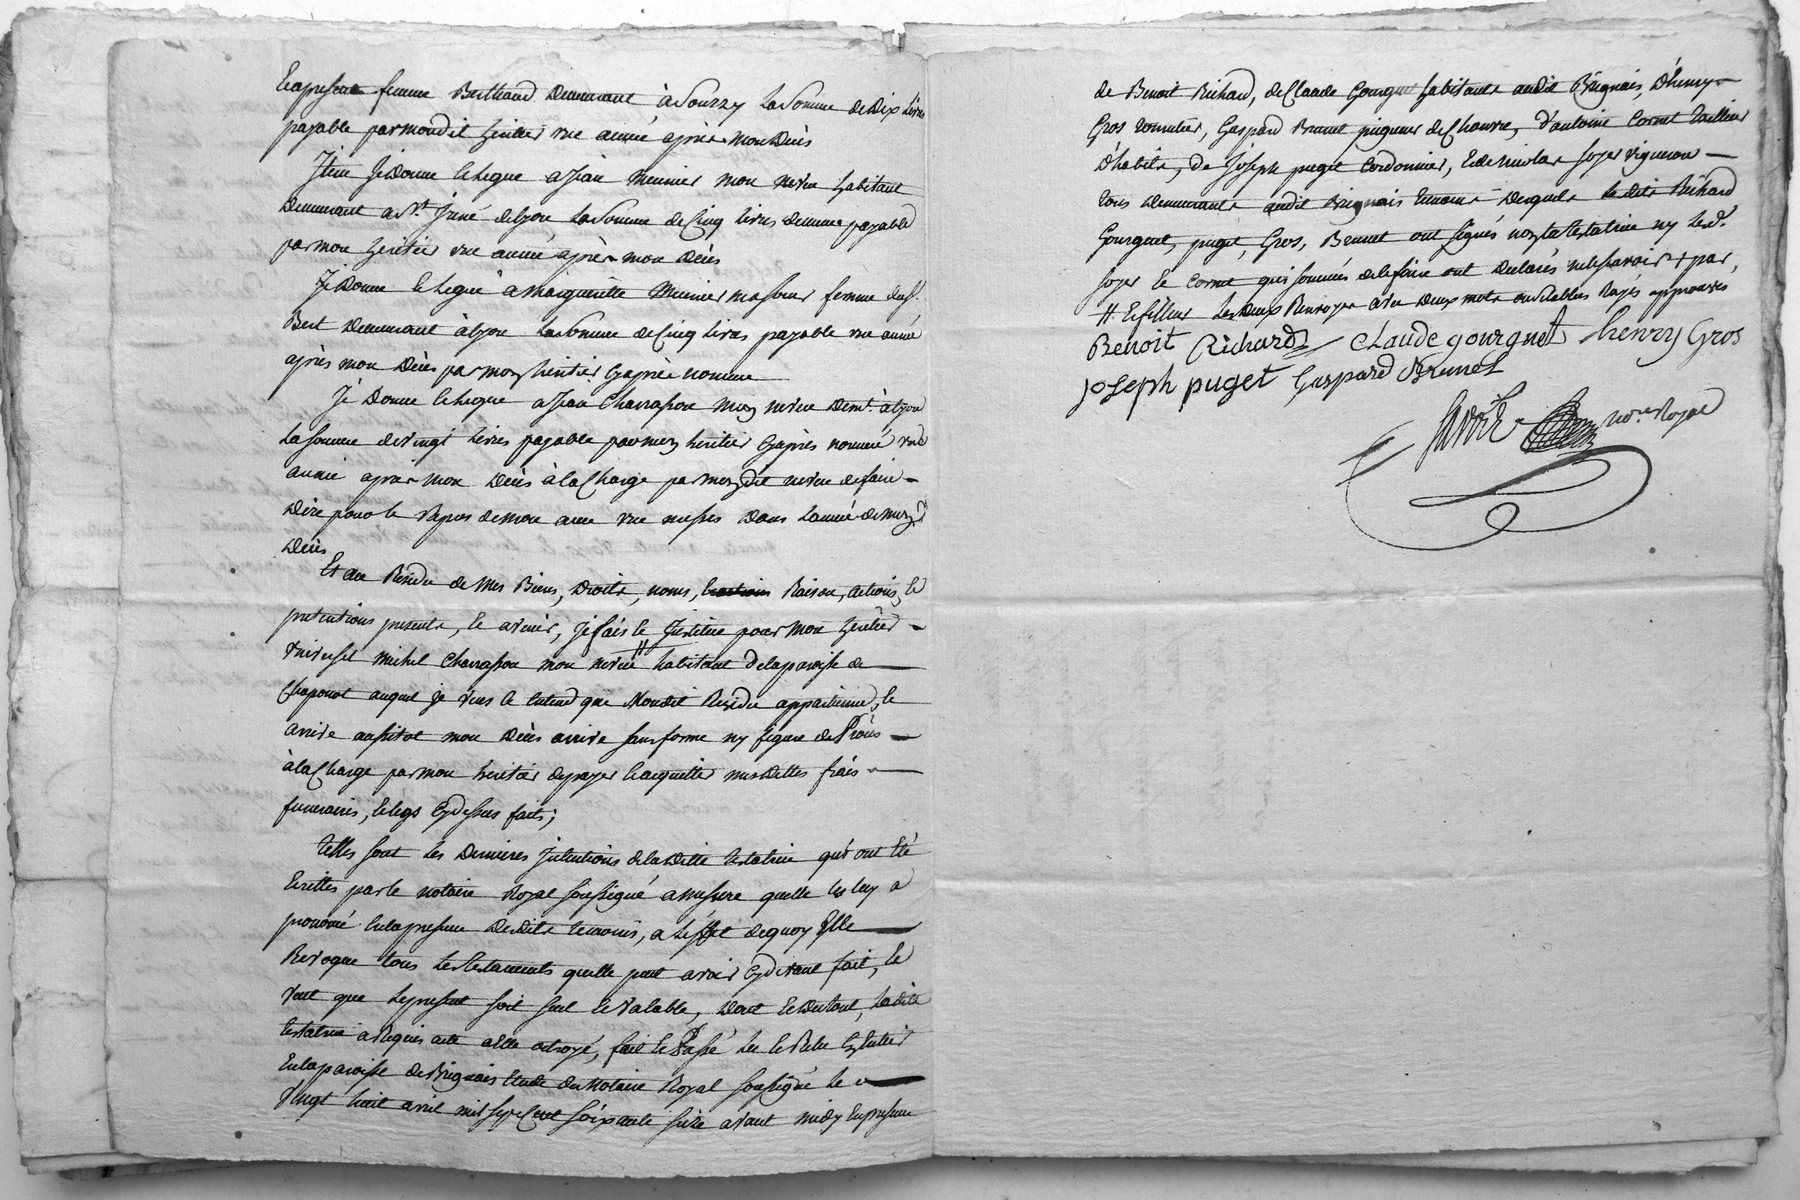 femme Berthaud demeurant à Sourzy la Somme de dix livres
payable par mondit heritier une année après mon Décès
Item Je Donne & Legue a Jean meunier mon neveu habitant
Demeurant a St. Irené de Lyon la Somme de Cinq livres de même payable
par mon heritier une année après mon Décès
Je Donne & Legue à margueritte Munier ma Soeur femme du Sr.
Bert Demeurant à Lyon la Somme de Cinq livres payable une année
après mon Décès par mon heritier Cyaprès nommé
Je Donne & Legue a Jean Charrasson mon neveu Demt. à Lyon
la Somme de vingt livres payable par mon heritier Cyaprès nommé une
année après mon Décès à la Charge par mondit neveu de faire
Dire pour le repos de mon ame une messes Dans l'année de mond.
Décès
Et au Residu de mes Biens, Droits, noms, Raison, actions, &
pretentions presents, & avenir, Je fais & Institue pour mon heritier
universel michel Charrasson mon neveu habitant de la paroisse de
Chaponot auquel je veus & Entend que Mondit Residu appartienne, &
arrive aussitot mon Décès arrivé sans forme ny figure de Procès
à la Charge par mon heritier de payer & acquitter mes Dettes frais
funeraires, & legs Cydessus faits;
Telles sont les Dernieres Intentions de la Ditte testatrice qui ont Eté
Ecrittes par le notaire Royal soussigné a mesure quelle les luy a
prononcé En la presence Desdits temoins, a L'effet de quoy Elle
Revoque tous les testaments quelle peut avoir Cydevant fait, &
veut que le present soit seul & valable, Dont & Du tout, ladite
testatrice a Requis acte a Elle octroyé, fait & Passé Lu & Relu En Entier
En la paroisse de Brignais Etude du Notaire Royal soussigné le
vingt huit avril mil sept Cent soixante seize avant midy En presence
de Benoit Richard, de Claude Gourguet habitants audit Brignais, D'henry
Gros tonnelier, Gaspard Brunet peigneur de Chanvre, d'antoine Cornet tailleur
D'habits, de Joseph puget Cordonnier, & de nicolas Soyer vigneron
tous demeurants audit Brignais temoins Desquels les dits Richard
Gourguet, puget, Gros, Brunet ont signés non la testatrice ny led.
Soyer & Cornet qui sommés de le faire ont Declarés ne le savoir + par
# Les Deux Renvoyes avec Deux mots Rayés approuvés
Benoit Richard Claude gourguet henry Gros
joseph puget Gaspard Brunet
no.re Royal